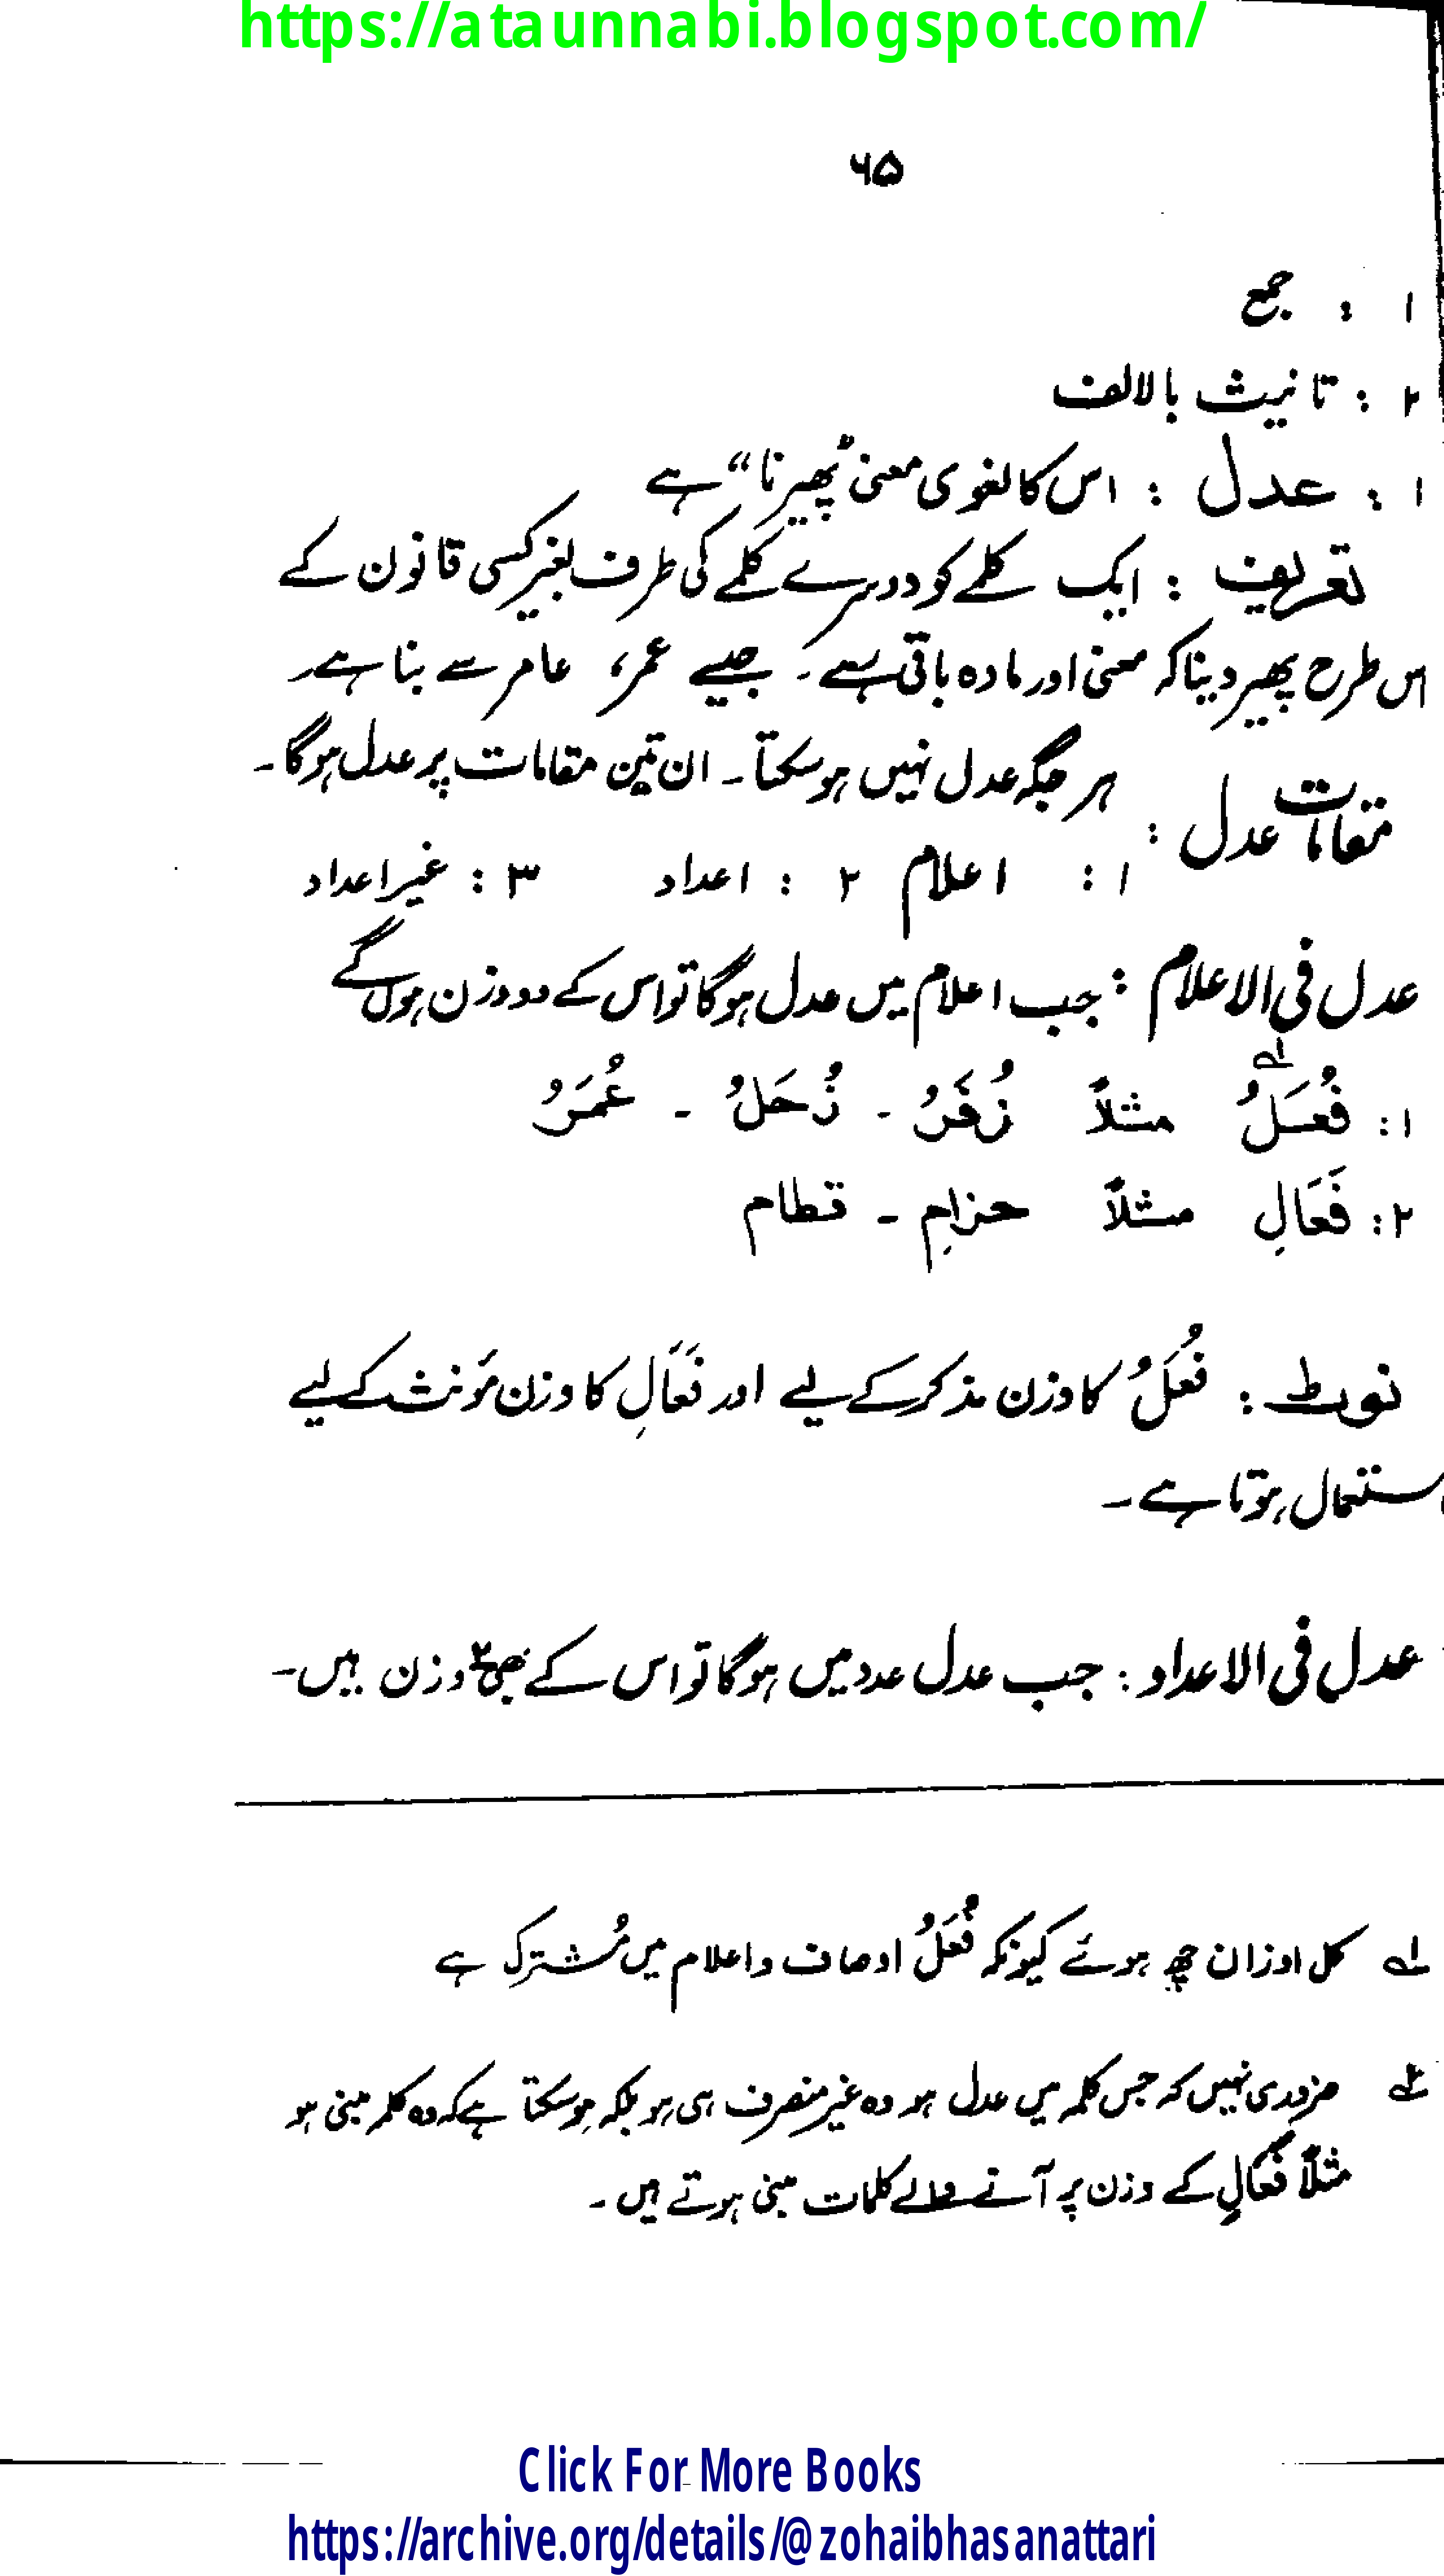 https://ataunnabi.blogspot.com/
۶۵
۱ : جمع
۲ : تانیث بالالف
۱ : عدل : اس کا لغوی معنی "پھیرنا" ہے
تعریف : ایک کلمے کو دوسرے کلمے کی طرف بغیر کسی قانون کے
اس طرح پھیر دینا کہ معنی اور مادہ باقی رہے۔ جیسے عمر، عامر سے بنا ہے۔
مقامات عدل : ہر جگہ عدل نہیں ہو سکتا۔ ان تین مقامات پر عدل ہوگا۔
۱ : اعلام ۲ : اعداد ۳ : غیر اعداد
عدل فی الاعلام : جب اعلام میں عدل ہوگا تو اس کے دو وزن ہوں گے
۱ : فُعَلُ لہ مثلاً زُفَرُ ۔ زُحَلُ ۔ عُمَرُ
۲ : فَعَالِ مثلاً حزامِ ۔ قطام
نوٹ : فُعَلُ کا وزن مذکر کے لیے اور فَعَالِ کا وزن مؤنث کے لیے
استعمال ہوتا ہے۔
عدل فی الاعداد : جب عدل عدد میں ہوگا تو اس کے بھی ۲ وزن ہیں۔
لہ کل اوزان چھ ہوئے کیونکہ فُعَلُ اوصاف و اعلام میں مُشترک ہے
۲ہ ضروری نہیں کہ جس کلمہ میں عدل ہو وہ غیر منصرف ہی ہو بلکہ ہو سکتا ہے کہ وہ کلمہ مبنی ہو
مثلاً فَعَالِ کے وزن پر آنے والے کلمات مبنی ہوتے ہیں۔
Click For More Books
https://archive.org/details/@zohaibhasanattari